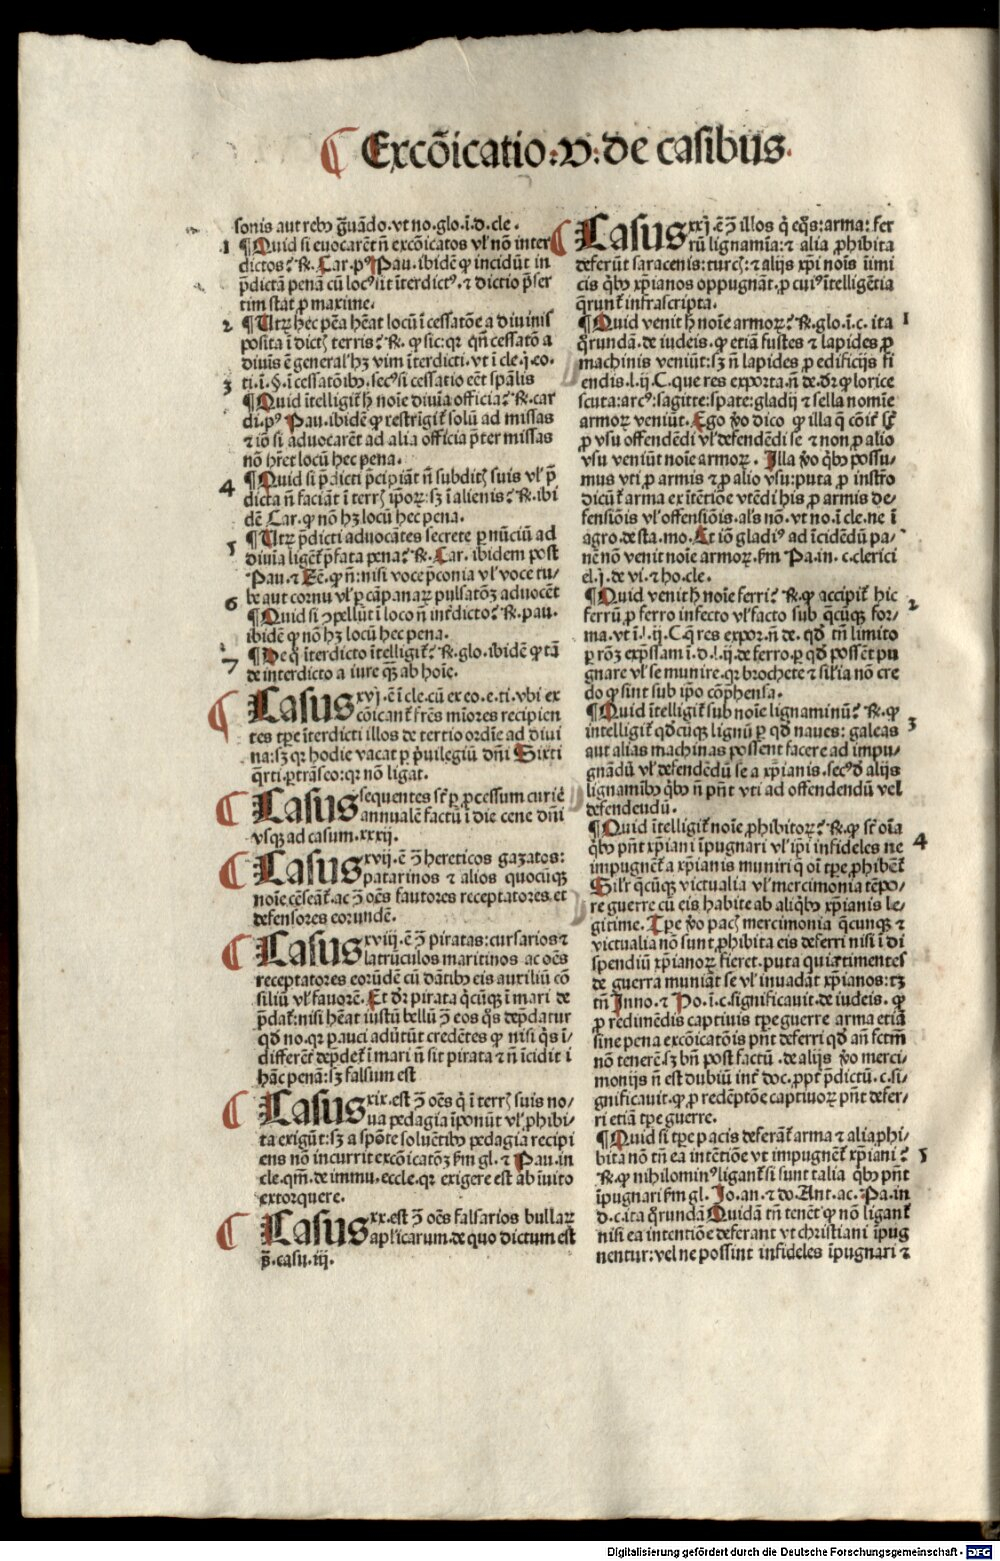 ¶ Excõicatio.v.de casibus.
sonis aut rebꝰ grauãdo.vt no.glo.i.d.cle.
1 ¶Quid si euocarẽt ñ excõicatos vl' nõ inter
dictos? R. Car.pꝰ Pau.ibidẽ ꝙ incidũt in
p̃dictã penã cũ locꝰ sit ĩterdictꝰ.⁊ dictio p̃ser
tim stat ꝓ maxime.
2 ¶Utrũ hec pẽa hẽat locũ ĩ cessatõe a diuinis
posita ĩ dict̃ terris? R. ꝙ sic:qr qñ cessatõ a
diuĩs ẽ general' hꝫ vim ĩterdicti.vt ĩ cle.j.eo.
ti.ĩ.§.ĩ cessatõibꝰ.secꝰ si cessatio eẽt sp̃alis
3 ¶Quid ĩtelligit̃ h̃ noĩe diuĩa officia? R.car
di.pꝰ Pau.ibidẽ ꝙ restrĩgit̃ solũ ad missas
⁊ iõ si aduocarẽt ad alia officia p̃ter missas
nõ hr̃et locũ hec pena.
4 ¶Quid si p̃dicti p̃cipiãt ñ subdit̃ suis vl' p̃
dicta ñ faciãt ĩ terr̃ ip̃oꝝ:sꝫ ĩ alienis? R.ibi
dẽ Car.ꝙ nõ hꝫ locũ hec pena.
5 ¶Utrũ p̃dicti aduocãtes secrete ꝑ nũciũ ad
diuĩa ligẽt̃ p̃fata pena? R. Car. ibidem post
Pau.⁊ Ge.ꝙ ñ:nisi voce p̃conia vl' voce tu/
be aut cornu vl' ꝑ cãpanaꝝ pulsatõꝫ aduocẽt
6 ¶Quid si ꝯpellũt ĩ loco ñ int̃dicto? R.pau.
ibidẽ ꝙ nõ hꝫ locũ hec pena.
7 ¶De q̃ ĩterdicto ĩtelligit̃? R.glo.ibidẽ ꝙ tã
de interdicto a iure qꝫ̃ ab hoĩe.
¶ Casus xvj.ẽ ĩ cle.cũ ex eo.e.ti.vbi ex
cõicant̃ fr̃es mĩores recipien
tes tp̃e ĩterdicti illos de tertio ordĩe ad diui
na:sꝫ qr hodie vacat ꝑ p̃uilegiũ dñi Sixti
q̃rti.ꝑtrãseo:qr nõ ligat.
¶ Casus sequentes st̃ ꝑ ꝓcessum curie
annualẽ factũ ĩ die cene dñi
vsqꝫ ad casum.xxxij.
¶ Casus xvij.ẽ ꝯ̃ hereticos gazatos:
patarinos ⁊ alios quocũqꝫ
noĩe cẽseãt̃.ac ꝯ̃ oẽs fautores receptatores et
defensores eorundẽ.
¶ Casus xviij.ẽ ꝯ̃ piratas:cursarios ⁊
latrũculos maritinos ac oẽs
receptatores eorũdẽ cũ dãtibꝰ eis auxiliũ cõ
siliũ vl' fauorẽ. Et dr̃ pirata q̃cũqꝫ ĩ mari de
p̃dat̃:nisi hẽat iustũ bellũ ꝯ̃ eos q̃s dep̃datur
qd̃ no.qr pauci aduĩtũt credẽtes ꝙ nisi q̃s ĩ/
differẽt̃ dep̃det̃ ĩ mari ñ sit pirata ⁊ ñ ĩcidit ĩ
hãc penã:sꝫ falsum est
¶ Casus xix.est ꝯ̃ oẽs q̃ ĩ terr̃ suis no/
ua pedagia ĩponũt vl' ꝓhibi/
ta exigũt:sꝫ a spõte soluẽtibꝰ pedagia recipi
ens nõ incurrit excõicatõꝫ ẜm gl.⁊ Pau.in
cle.qm̃.de immu.eccle.qr exigere est ab ĩuito
extorquere.
¶ Casus xx.est ꝯ̃ oẽs falsarios bullaꝝ
apl'icarum.de quo dictum est
s̃.casu.iij.
¶ Casus xxj.ẽ ꝯ̃ illos q̃ eq̃s:arma:fer
rũ lignamĩa:⁊ alia ꝓhibita
deferũt saracenis:turc̃:⁊ alijs xp̃i noĩs ĩimi
cis qbꝰ xp̃ianos oppugnãt.ꝓ cuiꝰ ĩtelligẽtia
q̃runt̃ infrascripta.
¶Quid venit h̃ noĩe armoꝝ? R.glo.ĩ.c. ita 1
q̃rundã.de iudeis.ꝙ etiã fustes ⁊ lapides ꝓ
machinis veniũt:sꝫ ñ lapides ꝓ edificijs fi
endis.l.ij.C.que res exporta.ñ de.dr̃ ꝙ lorice
scuta:arcꝰ:sagitte:spate:gladij ⁊ sella nomĩe
armoꝝ veniũt. Ego ṽo dico ꝙ illa q̃ cõit̃ st̃
ꝓ vsu offendẽdi vl' defendẽdi se ⁊ non ꝓ alio
vsu veniũt noĩe armoꝝ. Illa ṽo qbꝰ possu/
mus vti ꝓ armis ⁊ ꝓ alio vsu:puta ꝓ instr̃o
dicũt̃ arma ex ĩtẽtiõe vtẽdi his ꝓ armis de/
fensiõis vl' offensiõis.als nõ.vt no.ĩ cle.ne ĩ
agro.de sta.mo. Et iõ gladiꝰ ad ĩcidẽdũ pa/
nẽ nõ venit noĩe armoꝝ.ẜm Pa.in.c.clerici
el.j.de vi.⁊ ho.cle.
¶Quid venit h̃ noĩe ferri? R.ꝙ accipit̃ hic 2
ferrũ ꝓ ferro infecto vl' facto sub q̃cũqꝫ for/
ma.vt ĩ.l.ij.C.q̃ res expor.ñ de. qd̃ tñ limito
ꝑ rõꝫ exp̃ssam ĩ.d.l.ij.de ferro.ꝑ qd̃ possẽt pu
gnare vl' se munire.qr brochete ⁊ sil'ia nõ cre
do ꝙ sint sub ip̃o cõp̃hensa.
¶Quid ĩtelligit̃ sub noĩe lignaminũ? R.ꝙ 3
intelligit̃ qd̃cũqꝫ lignũ ꝑ qd̃ naues: galeas
aut alias machinas possent facere ad impu/
gnãdũ vl' defendẽdũ se a xp̃ianis.secꝰ d̃ alijs
lignamĩbꝰ qbꝰ ñ pñt vti ad offendendũ vel
defendendũ.
¶Quid ĩtelligit̃ noĩe ꝓhibitoꝝ? R.ꝙ st̃ oĩa 4
qbꝰ pñt xp̃iani ĩpugnari vl' ip̃i infideles ne
impugnẽt̃ a xp̃ianis muniri q̃ oĩ tp̃e ꝓhibẽt̃
Sil'r q̃cũqꝫ victualia vl' mercimonia tẽpo/
re guerre cũ eis habite ab aliq̃bꝰ xp̃ianis le/
gitime. Tp̃e ṽo pac̃ mercimonia q̃cunqꝫ ⁊
victualia nõ sunt ꝓhibita eis deferri nisi ĩ di
spendiũ xp̃ianoꝝ fieret.puta quia timentes
de guerra muniãt se vl' inuadãt xp̃ianos:tꝫ
tñ Inno.⁊ Ho.ĩ.c.significauit.de iudeis. ꝙ
ꝓ redimẽdis captiuis tp̃e guerre arma etiã
sine pena excõicatõis pñt deferri qd̃ añ fctm̃
nõ tenerẽ:sꝫ bñ post factũ .de alijs ṽo merci/
monijs ñ est dubiũ int̃ doc.ꝓpt̃ p̃dictũ.c.si/
gnificauit.ꝙ ꝓ redẽptõe captiuoꝝ pñt defer/
ri etiã tp̃e guerre.
¶Quid si tp̃e pacis deferãt̃ arma ⁊ alia ꝓhi/
bita nõ tñ ea intẽtiõe vt impugnẽt̃ xp̃iani? 5
R.ꝙ nihilominꝰ ligant̃ si sunt talia qbꝰ pñt
ĩpugnari ẜm gl. Jo.an.⁊ do. Ant.ac. Pa.in
d.c.ita q̃rundã Quidã tñ tenẽt ꝙ nõ ligant̃
nisi ea intentiõe deferant vt christiani ĩpug
nentur:vel ne possint infideles ĩpugnari ⁊
Digitalisierung gefördert durch die Deutsche Forschungsgemeinschaft - DFG